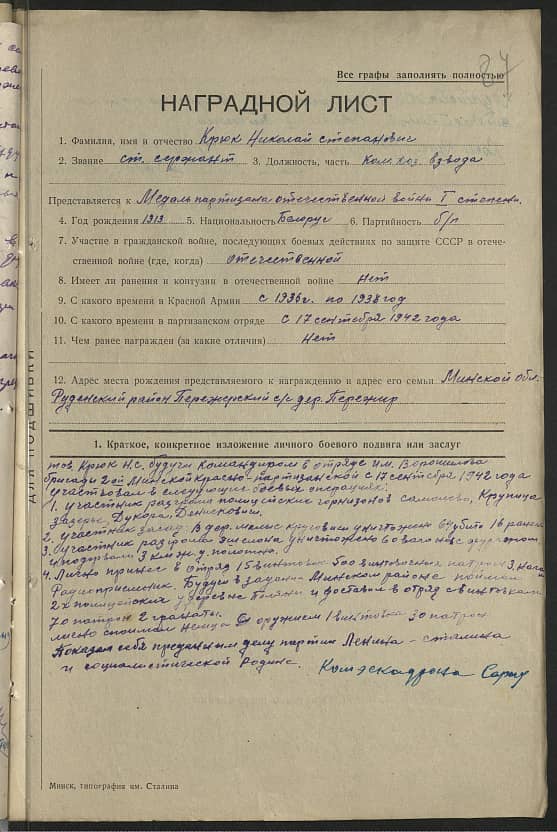 87
Все графы заполнять полностью
НАГРАДНОЙ ЛИСТ
1. Фамилия, имя и отчество Крюк Николай степанович
2. Звание ст. сержант 3. Должность, часть Ком. хоз взвода
Представляется к Медаль партизана отечественной войны I степени.
4. Год рождения 1913 5. Национальность Белорус 6. Партийность б/п
7. Участие в гражданской войне, последующих боевых действиях по защите СССР в отече-
ственной войне (где, когда) отечественной
8. Имеет ли ранения и контузии в отечественной войне Нет
9. С какого времени в Красной Армии с 1936г. по 1938 год
10. С какого времени в партизанском отряде с 17 сентября 1942 года
11. Чем ранее награжден (за какие отличия) Нет
12. Адрес места рождения представляемого к награждению и адрес его семьи Минской обл.
Руденский район Пережирский с/с дер. Пережир
ДЛЯ ПОДШИВКИ
1. Краткое, конкретное изложение личного боевого подвига или заслуг
тов. Крюк Н.с. будучи командиром в отряде им. Ворошилова
бригады 2ой Минской с 17 сентября 1942 года
участвовал в следующих боевых операциях:
1. участник разгрома полицейских горнизонов самолово, Крупица
Дукора, Денисовичи.
2. участник засад: в дер. уничтожено убито 16
3. участник разгрома эшелона уничтожено 6 вагонов с
и подорвали 3 км ж.д. полотна.
4. Лично принес в отряд 15 винтовок 500 винтовочных патрон
Радиоприемник. Будучи в задании Минском районе поймал
2х полицейских у деревне и доставил в отряд с винтовками
70 патрон 2 гранаты.
лично споймал немца с оружием 1 винтовка 30 патрон
Показал себя преданным делу партии Ленина-сталина
и социалистической родине. Комэскадрона
Минск, типография им. Сталина